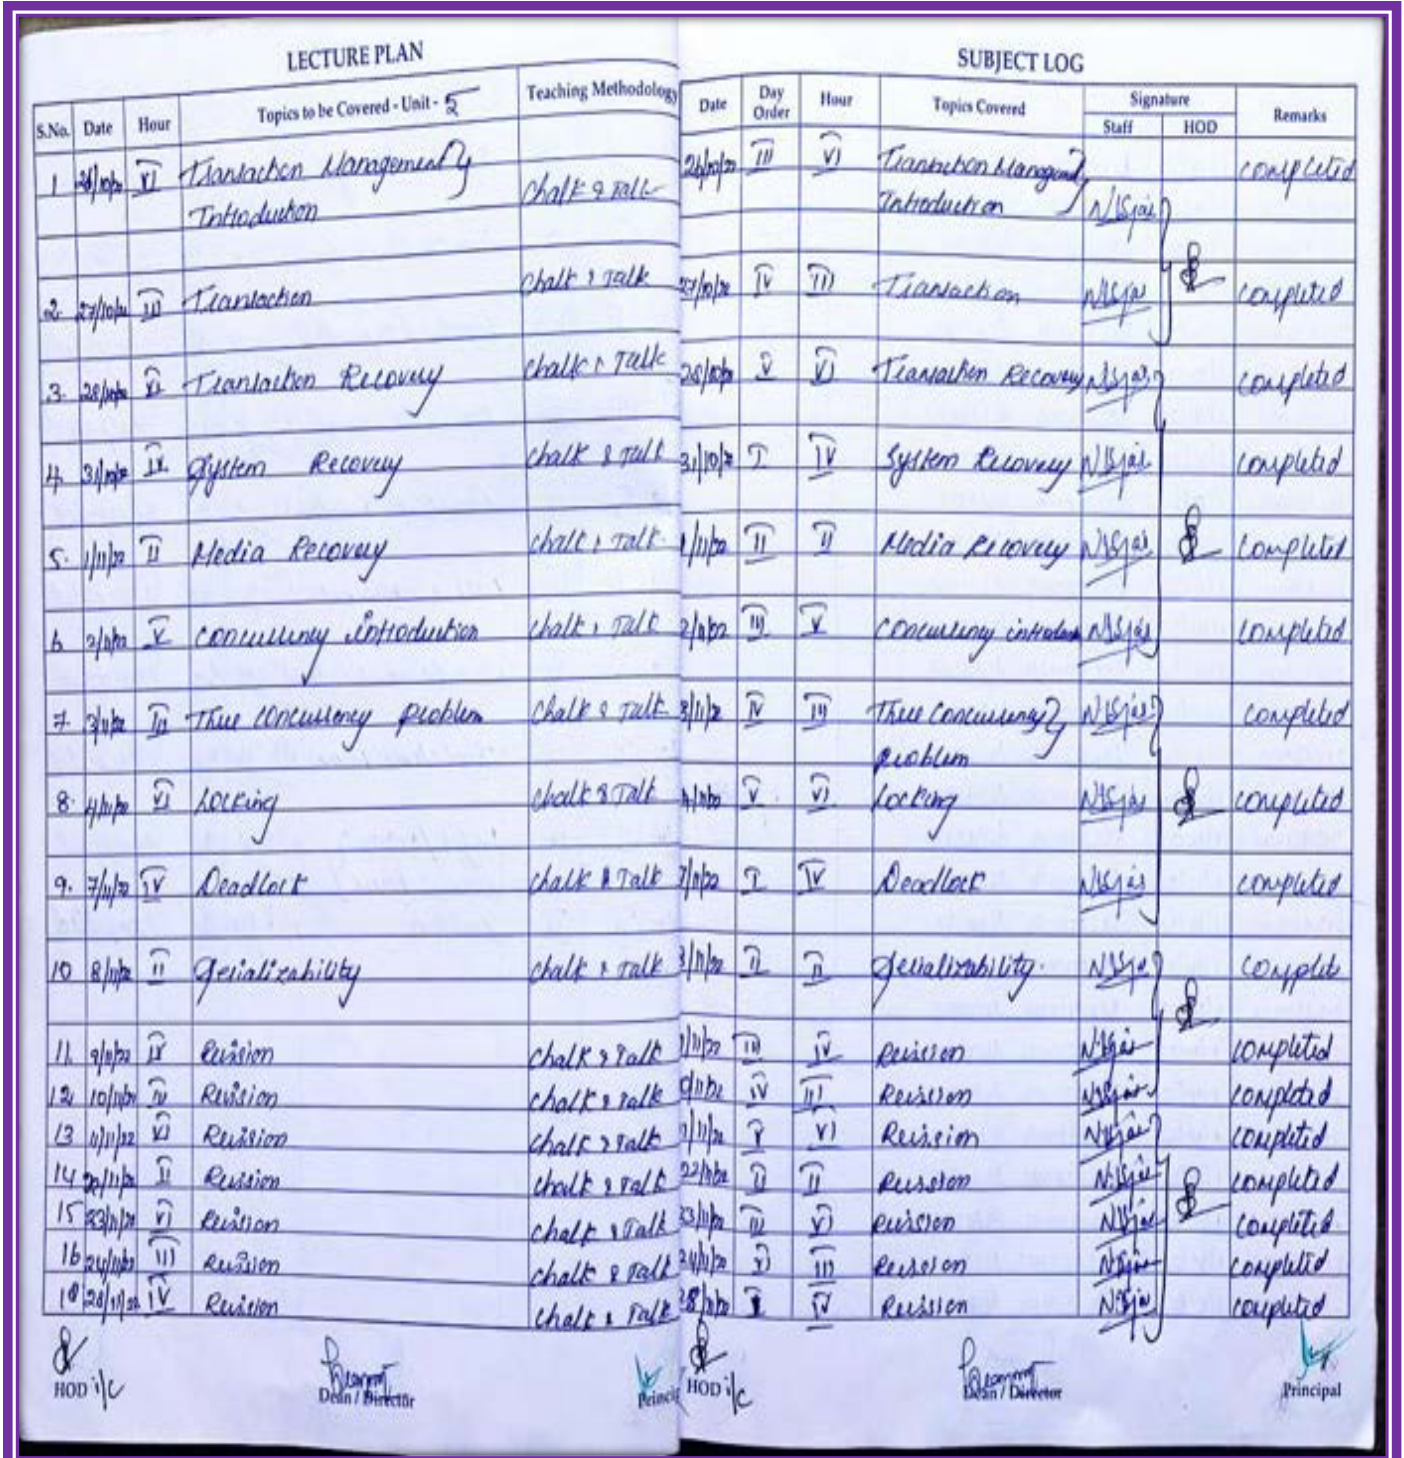 LECTURE PLAN
S.No. Date Hour Topics to be Covered - Unit - 5 Teaching Methodology
1 26/10/22 VI Transaction Management Introduction chalk & Talk
2. 27/10/22 III Transaction chalk & Talk
3. 28/10/22 VI Transaction Recovery chalk & Talk
4. 31/10/22 IV System Recovery chalk & Talk
5. 1/11/22 II Media Recovery chalk & Talk
6 2/11/22 V concurrency introduction chalk & Talk
7. 3/11/22 III Three concurrency problem chalk & Talk
8. 4/11/22 VI Locking chalk & Talk
9. 7/11/22 IV Deadlock chalk & Talk
10 8/11/22 II Serializability chalk & Talk
11. 9/11/22 Revision chalk & Talk
12. 10/11/22 Revision chalk & Talk
13 11/11/22 VI Revision chalk & Talk
14 22/11/22 II Revision chalk & Talk
15 23/11/22 VI Revision chalk & Talk
16 24/11/22 III Revision chalk & Talk
18 28/11/22 IV Revision chalk & Talk
HOD i/c Dean / Director
SUBJECT LOG
Date Day Order Hour Topics Covered Signature Staff HOD Remarks
26/10/22 III VI Transaction Management Introduction completed
27/10/22 IV III Transaction completed
28/10/22 V VI Transaction Recovery completed
31/10/22 I IV System Recovery completed
1/11/22 II II Media Recovery completed
2/11/22 III V concurrency completed
3/11/22 IV III Three concurrency problem completed
4/11/22 V VI Locking completed
7/11/22 I IV Deadlock completed
8/11/22 II II Serializability
9/11/22 III IV Revision completed
10/11/22 IV III Revision completed
11/11/22 V VI Revision completed
22/11/22 II II Revision completed
23/11/22 III VI Revision completed
24/11/22 III Revision completed
28/11/22 I IV Revision completed
HOD i/c Dean / Director Principal